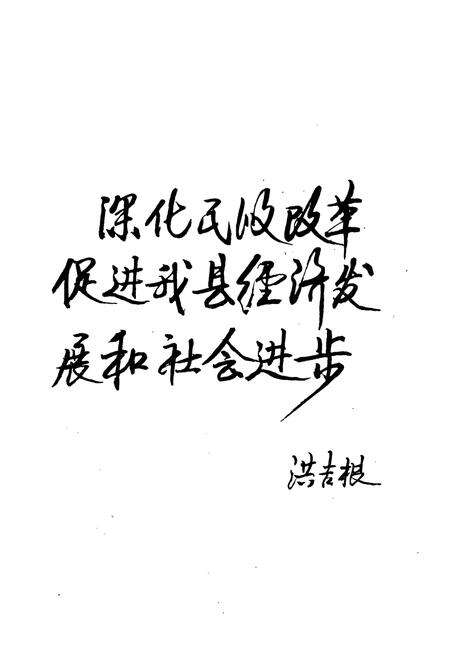 深化民政改革
促进我县经济发
展和社会进步
洪吉根